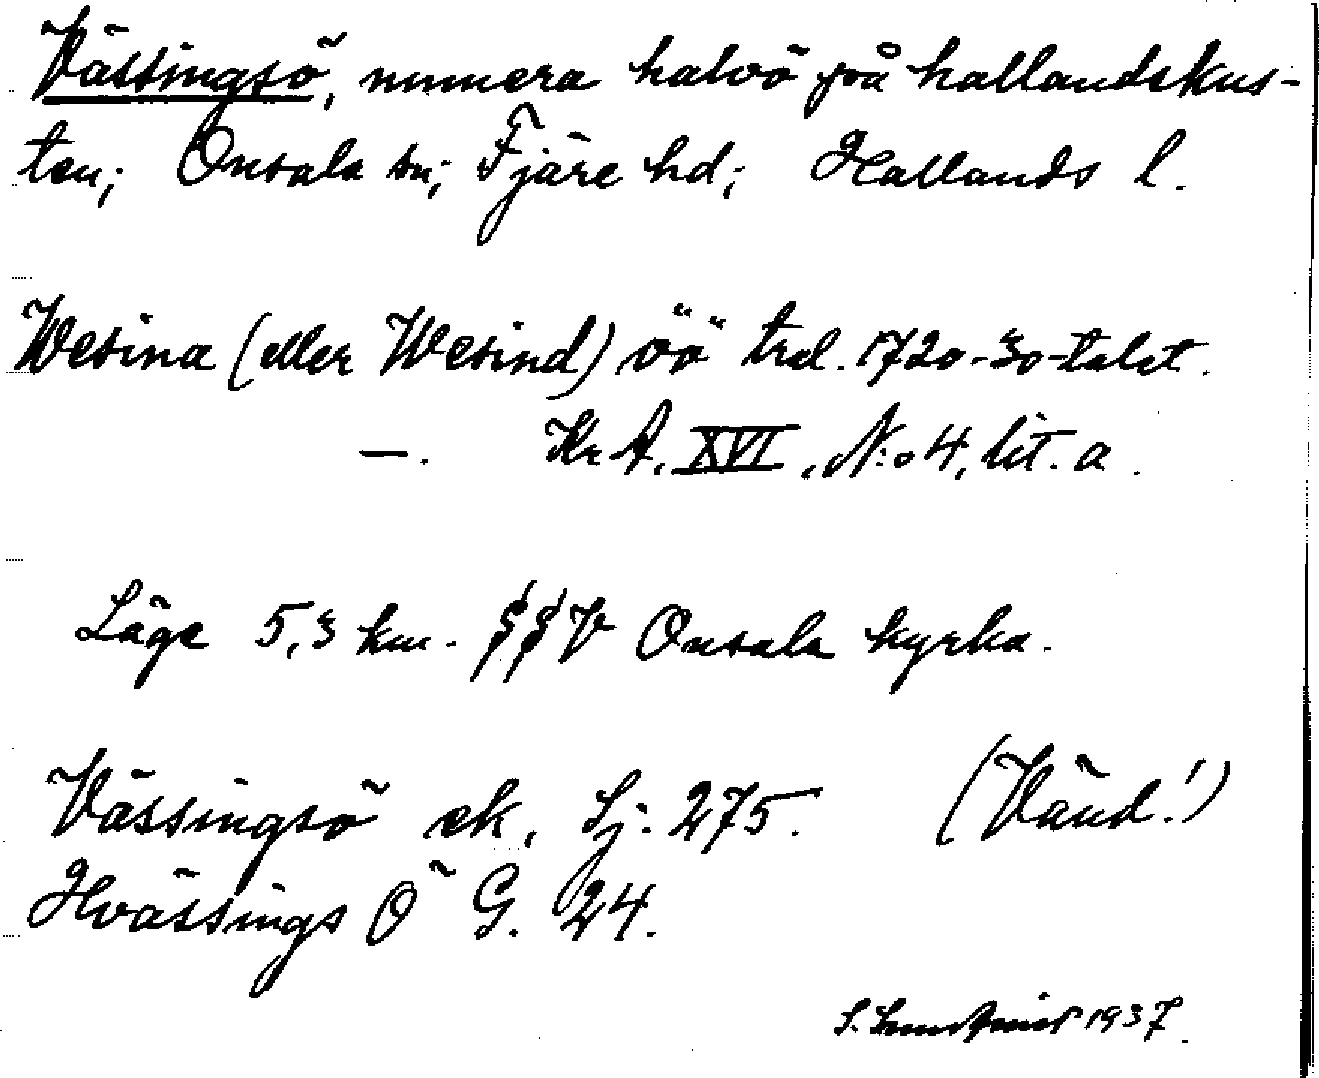 Vässingsö, numera halvö på hallandskus-
ten; Onsala sn; Fjäre hd; Hallands l.
Wesina (eller Wesind) öö trol. 1720-30-talet.
—. KrA. XVI, N:o 4, lit. a.
Läge 5,3 km. SSV Onsala kyrka.
Vässingsö ek, Sj. 275. (Vänd!)
Hvässings Ö G. 24.
S. 1937.